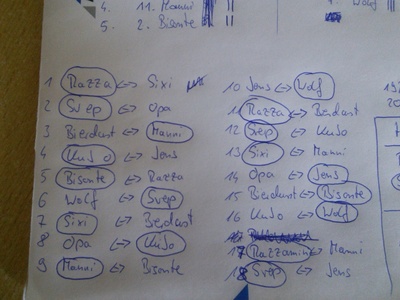 4. 11. Manni ||
5. 2. Bisonte ||
Wolf
1 Razza <-> Sixi
2 Svep <-> Opa
3 Bierdust <-> Manni
4 KuJo <-> Jens
5 Bisonte <-> Razza
6 Wolf <-> Svep
7 Sixi <-> Bierdust
8 Opa <-> KuJo
9 Manni <-> Bisonte
10 Jens <-> Wolf
11 Razza <-> Bierdust
12 Svep <-> KuJo
13 Sixi <-> Manni
14 Opa <-> Jens
15 Bierdust <-> Bisonte
16 KuJo <-> Wolf
17 Razzamin <-> Manni
18 Svep <-> Jens